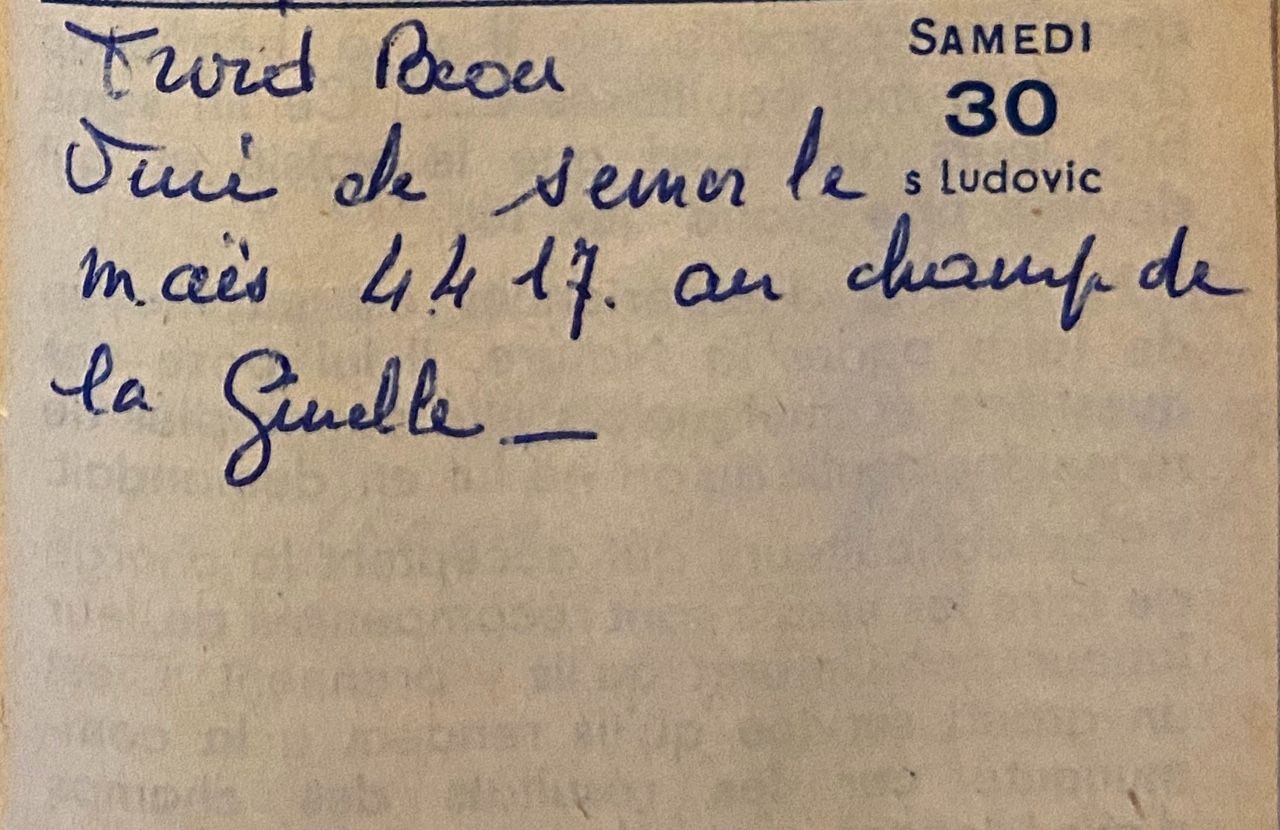 Froid Beau
SAMEDI
30
s Ludovic
Fini de semer le
maïs 4.4 17. au champ de
la Ginelle _